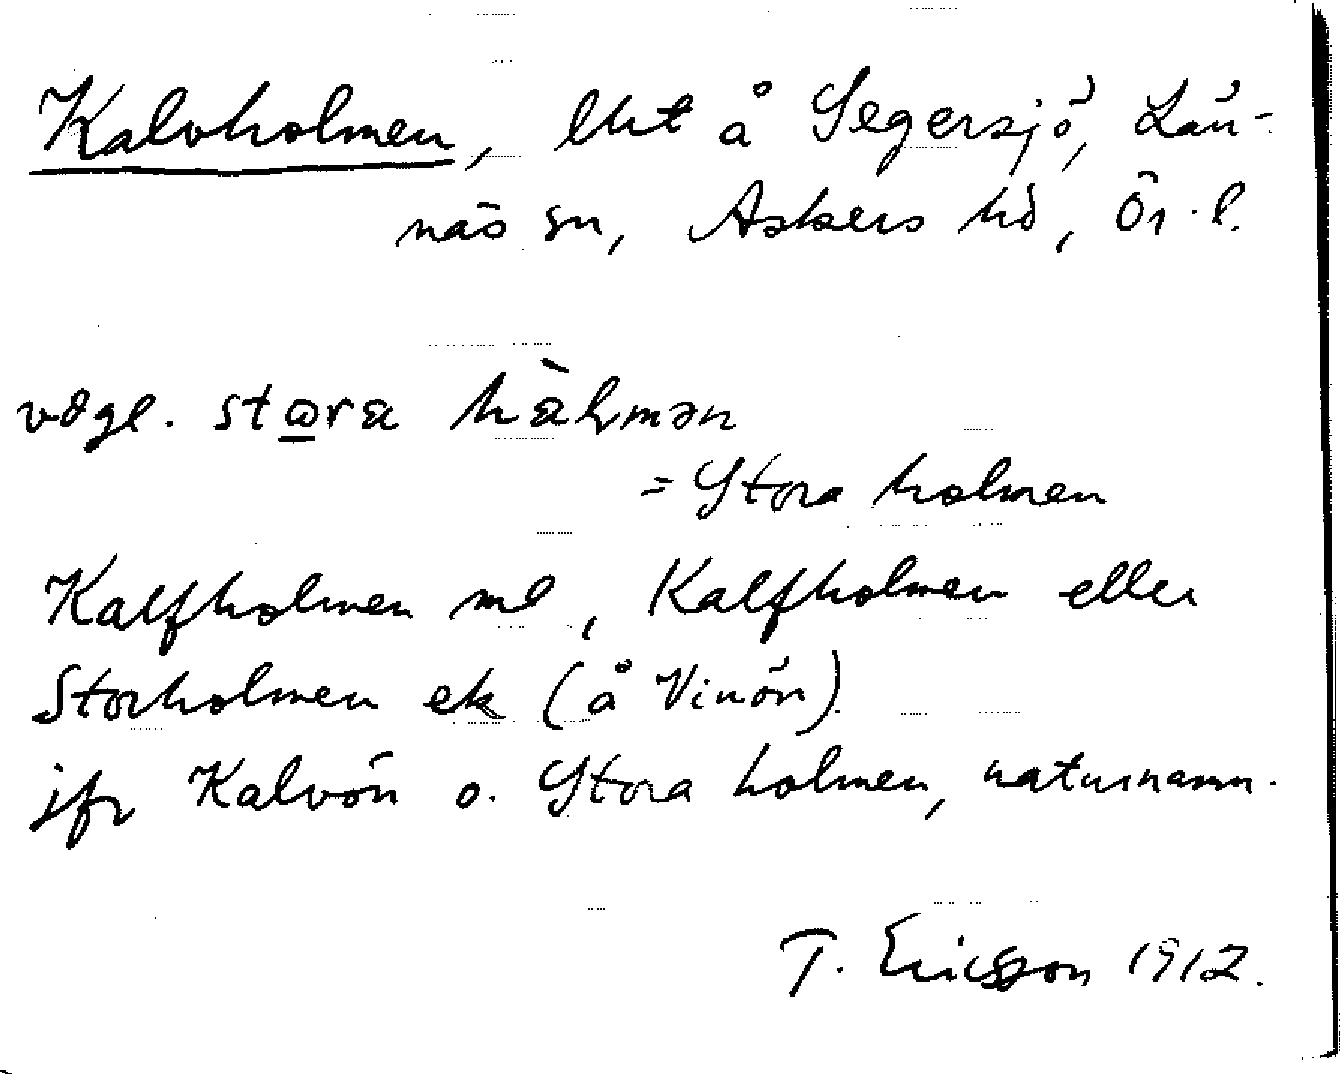 Kalvholmen, lht å Segersjö, Län-
näs sn, Askers hd, Ör. l.
vögl. stɷra hàlmən
= Stora holmen
Kalfholmen ml, Kalfholmen eller
Storholmen ek (å Vinön)
jfr Kalvön o. Stora holmen, naturnamn.
T. Ericsson 1912.